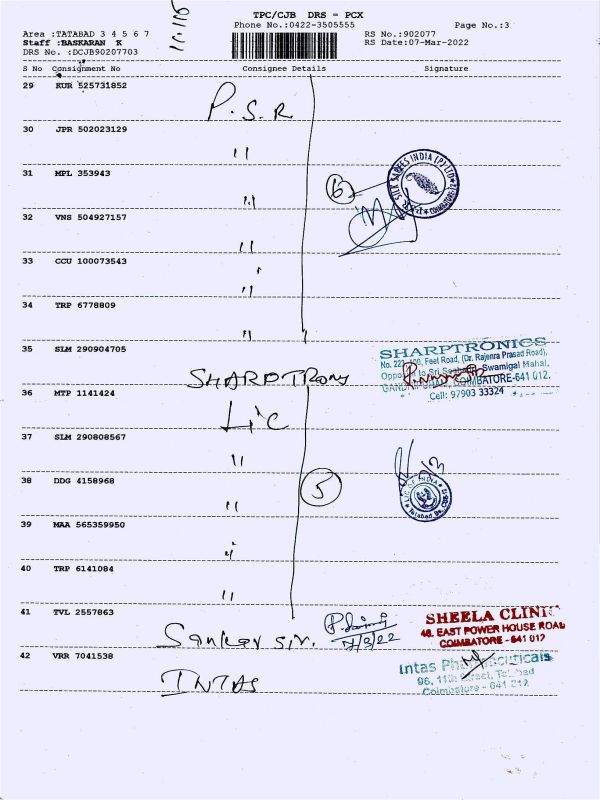 TPC/CJB DRS = PCX
Phone No.:0422-3505555 Page No.:3
Area :TATABAD 3 4 5 6 7 RS No.:902077
Staff :BASKARAN K RS Date:07-Mar-2022
DRS No. :DCJB90207703
S No Consignment No Consignee Details Signature
29 KUR 525731852
P.S.R
30 JPR 502023129
"
31 MPL 353943
"
6
SILK SAREES INDIA (P) LTD
COIMBATORE-12
32 VNS 504927157
"
33 CCU 100073543
"
34 TRP 6778809
"
35 SLM 290904705
SHARPTRONICS
No. 223, 100, Feet Road, (Dr. Rajenra Prasad Road),
Swamigal Mahal,
COIMBATORE-641 012.
Cell: 97903 33324
SHARPTRONY
36 MTP 1141424
LIC
37 SLM 290808567
"
38 DDG 4158968
"
5
LIC OF INDIA
Tatabad
39 MAA 565359950
"
40 TRP 6141084
"
41 TVL 2557863
Sankar
7/3/22
SHEELA CLINIC
48, EAST POWER HOUSE ROAD
COIMBATORE - 641 012
42 VRR 7041538
INTAS
Intas Pharmaceuticals
96, 11th Street, Tatabad
Coimbatore - 641 012